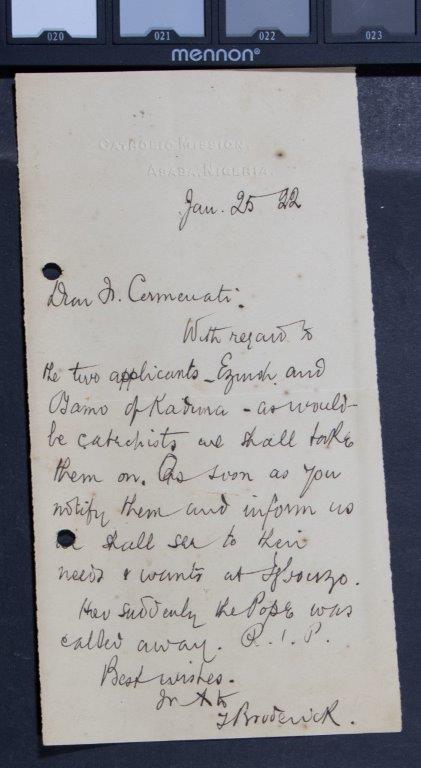 020 021 022 023
mennon®
CATHOLIC MISSION,
ASABA, NIGERIA.
Jan. 25 22
Dear Fr. Cermenati.
With regard to
the two applicants - and
of Kaduna - as would-
be catechists we shall take
them on. As soon as you
notify them and inform us
we shall see to their
needs & wants at
How suddenly the Pope was
called away. R.I.P.
Best wishes.
In
T Broderick.